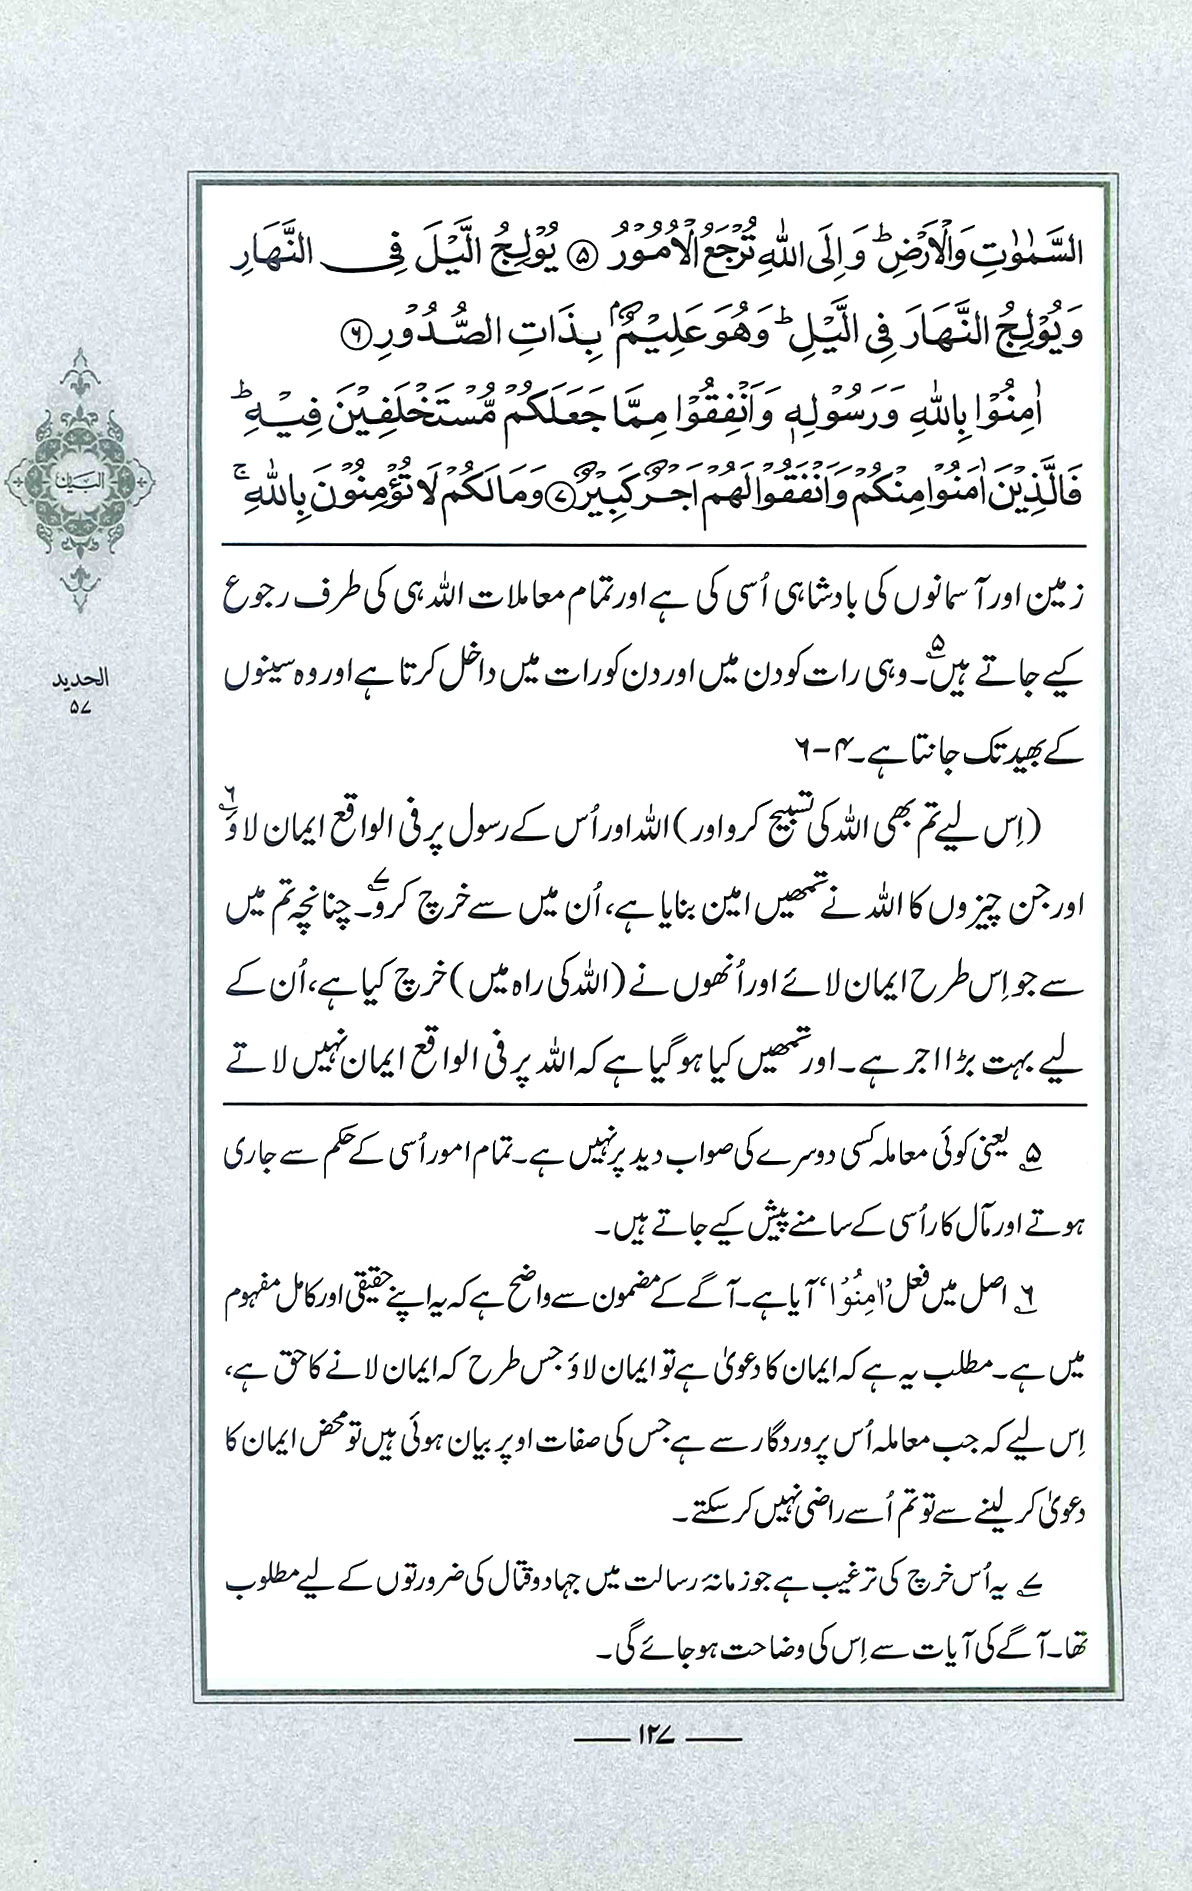 السَّمٰوٰتِ وَالْاَرْضِ ؕ وَ اِلَى اللّٰهِ تُرْجَعُ الْاُمُوْرُ ﴿۵﴾ يُوْلِجُ الَّيْلَ فِى النَّهَارِ
وَيُوْلِجُ النَّهَارَ فِى الَّيْلِ ؕ وَهُوَ عَلِيْمٌۢ بِذَاتِ الصُّدُوْرِ ﴿۶﴾
اٰمِنُوْا بِاللّٰهِ وَ رَسُوْلِهٖ وَ اَنْفِقُوْا مِمَّا جَعَلَكُمْ مُّسْتَخْلَفِيْنَ فِيْهِ ؕ
فَالَّذِيْنَ اٰمَنُوْا مِنْكُمْ وَ اَنْفَقُوْا لَهُمْ اَجْرٌ كَبِيْرٌ ﴿۷﴾ وَمَا لَكُمْ لَا تُؤْمِنُوْنَ بِاللّٰهِ ۚ
البیان
الحدید
۵۷
زمین اور آسمانوں کی بادشاہی اُسی کی ہے اور تمام معاملات اللہ ہی کی طرف رجوع
کیے جاتے ہیں۵۔ وہی رات کو دن میں اور دن کو رات میں داخل کرتا ہے اور وہ سینوں
کے بھید تک جانتا ہے۔ ۴-۶
(اِس لیے تم بھی اللہ کی تسبیح کرو اور) اللہ اور اُس کے رسول پر فی الواقع ایمان لاؤ۶
اور جن چیزوں کا اللہ نے تمھیں امین بنایا ہے، اُن میں سے خرچ کرو۷۔ چنانچہ تم میں
سے جو اِس طرح ایمان لائے اور اُنھوں نے (اللہ کی راہ میں) خرچ کیا ہے، اُن کے
لیے بہت بڑا اجر ہے۔ اور تمھیں کیا ہو گیا ہے کہ اللہ پر فی الواقع ایمان نہیں لاتے
۵ یعنی کوئی معاملہ کسی دوسرے کی صواب دید پر نہیں ہے۔ تمام امور اُسی کے حکم سے جاری
ہوتے اور مآل کار اُسی کے سامنے پیش کیے جاتے ہیں۔
۶ اصل میں فعل ’اٰمِنُوْا‘ آیا ہے۔ آگے کے مضمون سے واضح ہے کہ یہ اپنے حقیقی اور کامل مفہوم
میں ہے۔ مطلب یہ ہے کہ ایمان کا دعویٰ ہے تو ایمان لاؤ جس طرح کہ ایمان لانے کا حق ہے،
اِس لیے کہ جب معاملہ اُس پروردگار سے ہے جس کی صفات اوپر بیان ہوئی ہیں تو محض ایمان کا
دعویٰ کر لینے سے تو تم اُسے راضی نہیں کر سکتے۔
۷ یہ اُس خرچ کی ترغیب ہے جو زمانۂ رسالت میں جہاد و قتال کی ضرورتوں کے لیے مطلوب
تھا۔ آگے کی آیات سے اِس کی وضاحت ہو جائے گی۔
۱۲۷